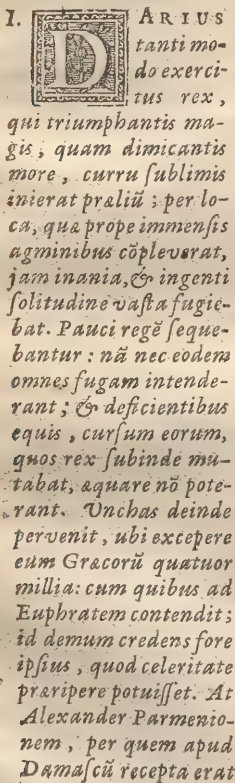 I. DARIUS
tanti mo-
do exerci-
tus rex,
qui triumphantis ma-
gis, quam dimicantis
more, curru ſublimis
inierat præliũ; per lo-
ca, quæ prope immenſis
agminibus cõpleverat,
jam inania, & ingenti
ſolitudine vaſta fugie-
bat. Pauci regẽ ſeque-
bantur: nã nec eodem
omnes fugam intende-
rant; & deficientibus
equis, curſum eorum,
quos rex ſubinde mu-
tabat, æquare nõ pote-
rant. Unchas deinde
pervenit, ubi excepere
eum Græcorũ quatuor
millia: cum quibus ad
Euphratem contendit;
id demum credens fore
ipſius, quod celeritate
præripere potuiſſet. At
Alexander Parmenio-
nem, per quem apud
Damaſcũ recepta erat